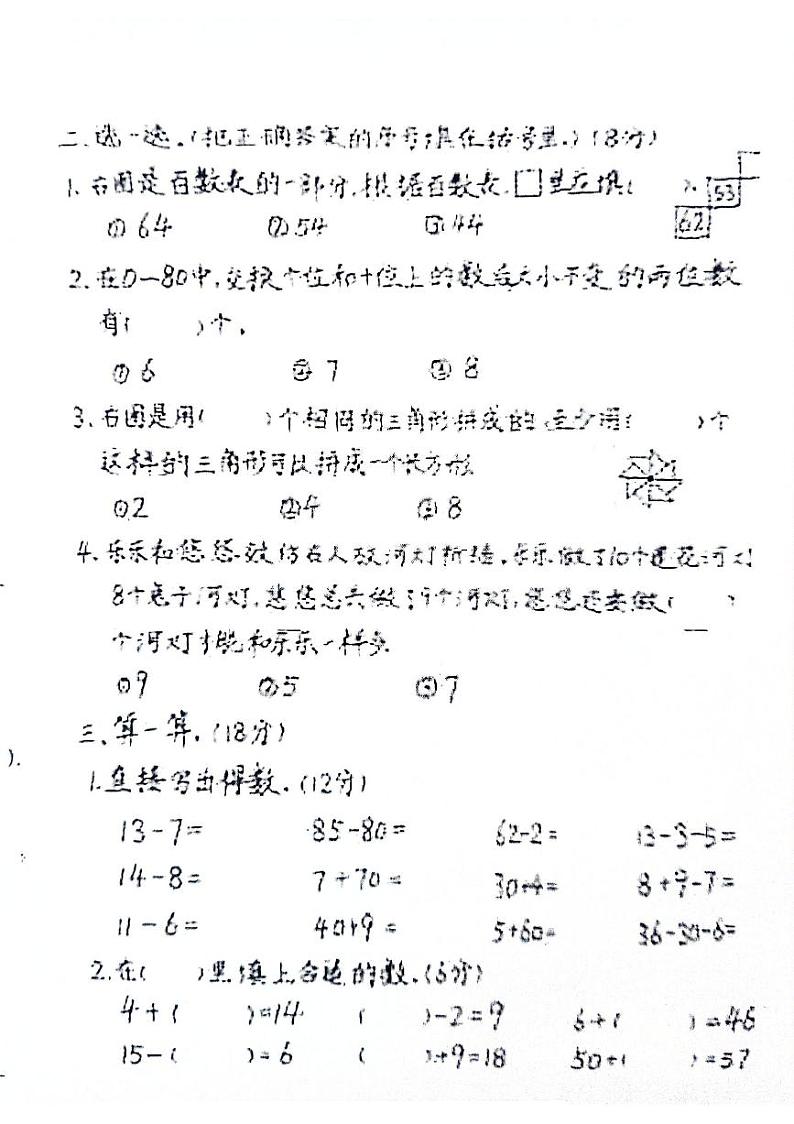 二、选一选。(把正确答案的序号填在括号里。)(8分)
1. 右图是百数表的一部分,根据百数表,□里应填(  )。
53
① 64 ② 54 ③ 44
62
2. 在0—80中,交换个位和十位上的数后大小不变的两位数
有(  )个。
① 6 ② 7 ③ 8
3. 右图是用(  )个相同的三角形拼成的,至少用(  )个
这样的三角形可以拼成一个长方形
① 2 ② 4 ③ 8
4. 乐乐和悠悠效仿古人放河灯祈福,乐乐做了10个莲花河灯
8个兔子河灯,悠悠总共做了9个河灯,悠悠还要做(  )
个河灯才能和乐乐一样多
① 9 ② 5 ③ 7
三、算一算。(18分)
).
1. 直接写出得数。(12分)
13-7= 85-80= 62-2= 13-3-5=
14-8= 7+70= 30+4= 8+9-7=
11-6= 40+9= 5+60= 36-30-6=
2. 在(  )里填上合适的数。(6分)
4+(  )=14 (  )-2=9 6+(  )=46
15-(  )=6 (  )+9=18 50+(  )=57